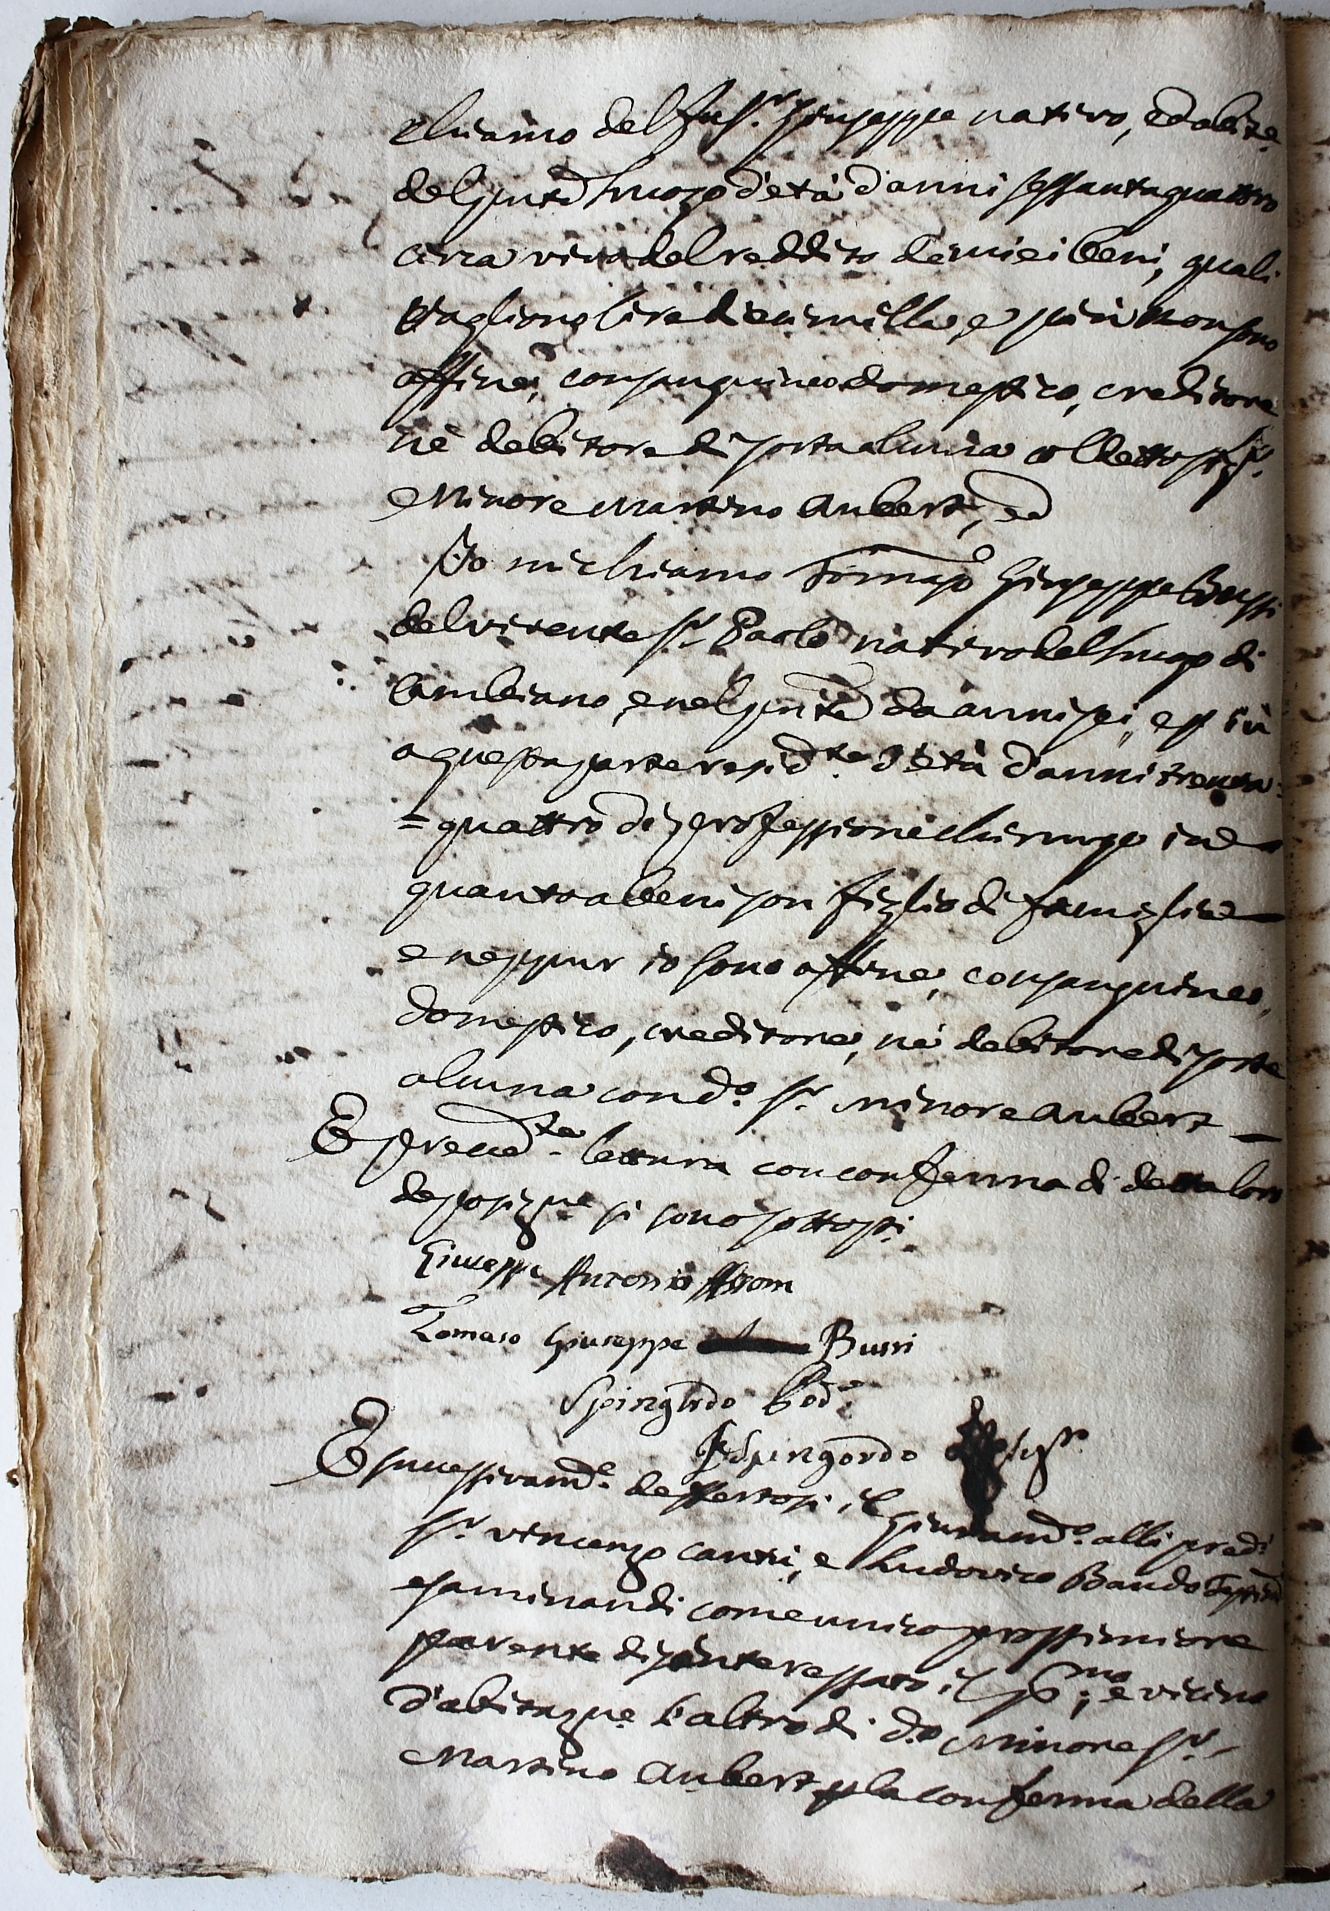 chiamo del fu Sr. Giuseppe nativo, ed abite.
del pnte luogo d'età d'anni sessantaquattro
circa vivo del reddito de miei beni, quali
vagliono lire diecimilla, e più non sono
affine, consanguineo domestico, creditore
nè debitore di sorta alcuna col detto Sr.
Minore Martino Aubert, ed
Io mi chiamo Tomaso Giuseppe Bussi
del vivente Sr. Paolo nativo del luogo di
Cambiano, e nel pnte da anni sei, e più
a questa parte resid.te d'età d'anni trenta=
=quattro di professione chirurgo, ed
quanto a beni son figlio di famiglia
e neppur io sono affine, consanguineo,
domestico, creditore, nè debitore di sorte
alcuna con d.o Sr. minore Aubert
E preced.te lettura con conferma di detta loro
deposizne si sono sottosti.
Giuseppe Antonio Assom
Tomaso Giuseppe Bussi
Spingardo Pod.e
Spingardo Seg.ro
E successivam.e defertosi il Giuram.o alli pred.i
Sr. Vincenzo Canti, e Ludovico Baudo
esaminandi come unico prossimiore
parente disinteressato il p.mo, e vicino
d'abitazne l'altro di d.o Minore Sr.
Martino Aubert p la conferma della